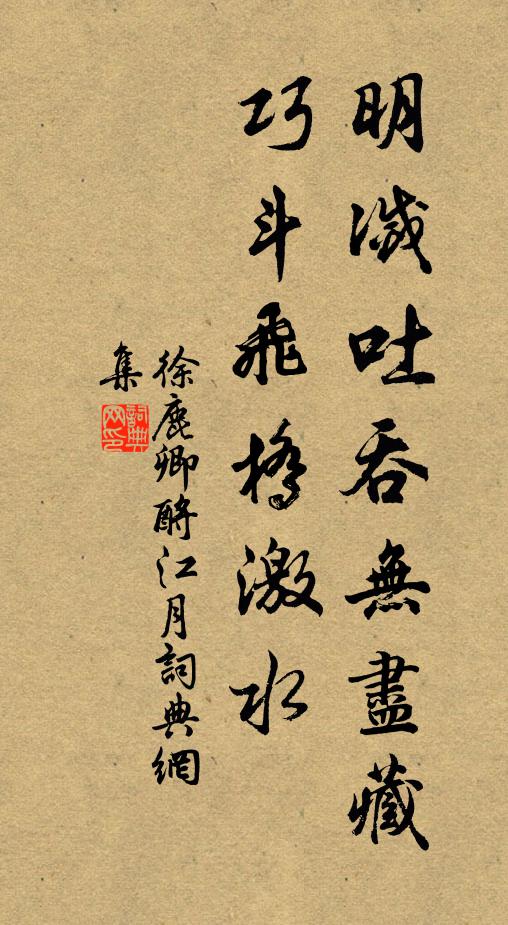 明滅吐吞無盡藏
巧斗飛橋激水
徐鹿卿酹江月詞典網
集
詞典網印